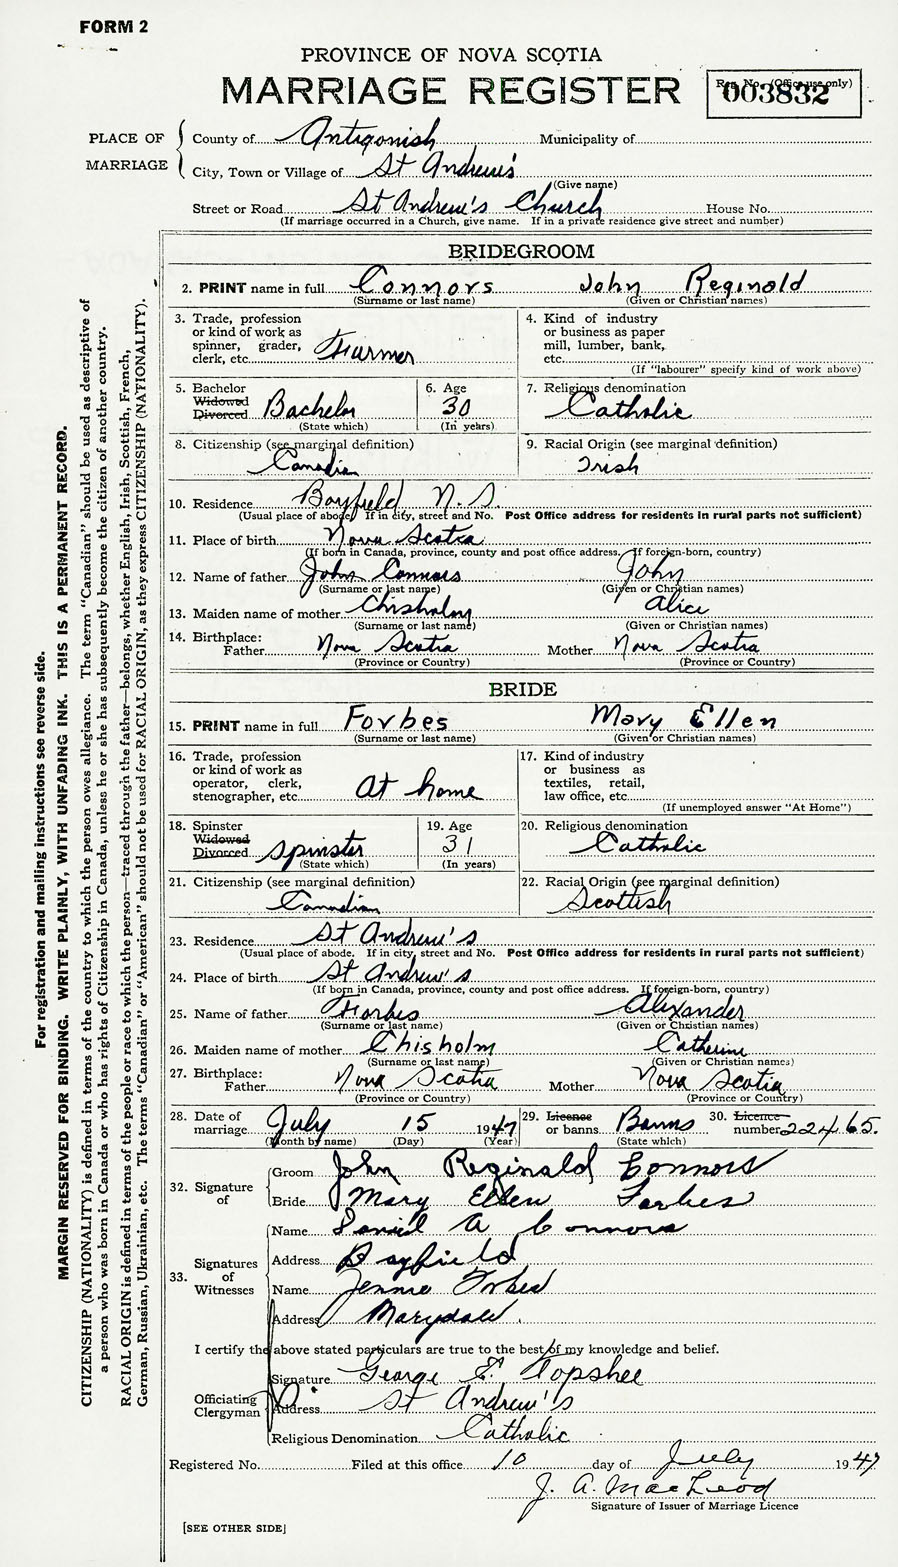 FORM 2
PROVINCE OF NOVA SCOTIA
MARRIAGE REGISTER
Reg. No. (Office use only)
003832
PLACE OF MARRIAGE
County of Antigonish Municipality of
City, Town or Village of St Andrew's
(Give name)
Street or Road St Andrew's Church House No.
(If marriage occurred in a Church, give name. If in a private residence give street and number)
BRIDEGROOM
2. PRINT name in full Connors John Reginald
(Surname or last name) (Given or Christian names)
3. Trade, profession
or kind of work as
spinner, grader,
clerk, etc. Farmer
4. Kind of industry
or business as paper
mill, lumber, bank,
etc.
(If "labourer" specify kind of work above)
5. Bachelor
Widowed
Divorced Bachelor
(State which)
6. Age
30
(In years)
7. Religious denomination
Catholic
8. Citizenship (see marginal definition)
Canadian
9. Racial Origin (see marginal definition)
Irish
10. Residence Bayfield N.S.
(Usual place of abode. If in city, street and No. Post Office address for residents in rural parts not sufficient)
11. Place of birth Nova Scotia
(If born in Canada, province, county and post office address. If foreign-born, country)
12. Name of father John Connors John
(Surname or last name) (Given or Christian names)
13. Maiden name of mother Chisholm Alice
(Surname or last name) (Given or Christian names)
14. Birthplace:
Father Nova Scotia Mother Nova Scotia
(Province or Country) (Province or Country)
BRIDE
15. PRINT name in full Forbes Mary Ellen
(Surname or last name) (Given or Christian names)
16. Trade, profession
or kind of work as
operator, clerk,
stenographer, etc. At home
17. Kind of industry
or business as
textiles, retail,
law office, etc.
(If unemployed answer "At Home")
18. Spinster
Widowed
Divorced Spinster
(State which)
19. Age
31
(In years)
20. Religious denomination
Catholic
21. Citizenship (see marginal definition)
Canadian
22. Racial Origin (see marginal definition)
Scottish
23. Residence St Andrew's
(Usual place of abode. If in city, street and No. Post Office address for residents in rural parts not sufficient)
24. Place of birth St Andrew's
(If born in Canada, province, county and post office address. If foreign-born, country)
25. Name of father Forbes Alexander
(Surname or last name) (Given or Christian names)
26. Maiden name of mother Chisholm Catherine
(Surname or last name) (Given or Christian names)
27. Birthplace:
Father Nova Scotia Mother Nova Scotia
(Province or Country) (Province or Country)
28. Date of
marriage July 15 1947
(Month by name) (Day) (Year)
29. Licence
or banns Banns
(State which)
30. Licence
number 22465.
32. Signature
of
Groom John Reginald Connors
Bride Mary Ellen Forbes
33. Signatures
of
Witnesses
Name Daniel A Connors
Address Bayfield
Name Jennie Forbes
Address Marydale.
I certify the above stated particulars are true to the best of my knowledge and belief.
Officiating
Clergyman
Signature George E. Topshee
Address St Andrew's
Religious Denomination Catholic
Registered No. Filed at this office 10 day of July 1947
J. A. MacLeod
Signature of Issuer of Marriage Licence
[SEE OTHER SIDE]
For registration and mailing instructions see reverse side.
MARGIN RESERVED FOR BINDING. WRITE PLAINLY, WITH UNFADING INK. THIS IS A PERMANENT RECORD.
CITIZENSHIP (NATIONALITY) is defined in terms of the country to which the person owes allegiance. The term "Canadian" should be used as descriptive of
a person who was born in Canada or who has rights of Citizenship in Canada, unless he or she has subsequently become the citizen of another country.
RACIAL ORIGIN is defined in terms of the people or race to which the person—traced through the father—belongs, whether English, Irish, Scottish, French,
German, Russian, Ukrainian, etc. The terms "Canadian" or "American" should not be used for RACIAL ORIGIN, as they express CITIZENSHIP (NATIONALITY).